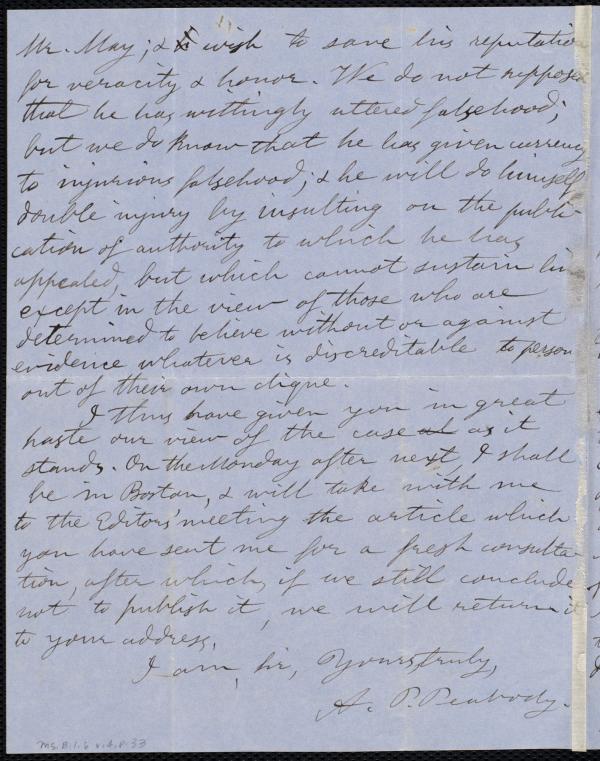 Mr. May; & wish to save his reputation
for veracity & honor. We do not suppose
that he has wittingly uttered falsehood;
but we do know that he has given currency
to injurious falsehood; & he will do himself
double injury by insulting on the publi-
cation of authority to which he has
appealed, but which cannot sustain him
except in the view of those who are
determined to believe without or against
evidence whatever is discreditable to person
out of their own clique.
I thus have given you in great
haste our view of the case as it
stands. On the Monday after next, I shall
be in Boston, & will take with me
to the Editors' meeting the article which
you have sent me for a fresh consulta-
tion, after which, if we still conclude
not to publish it, we will return it
to your address.
I am, sir, Yours, truly,
A. P. Peabody.
Ms. B.1.6 v.4, p.33